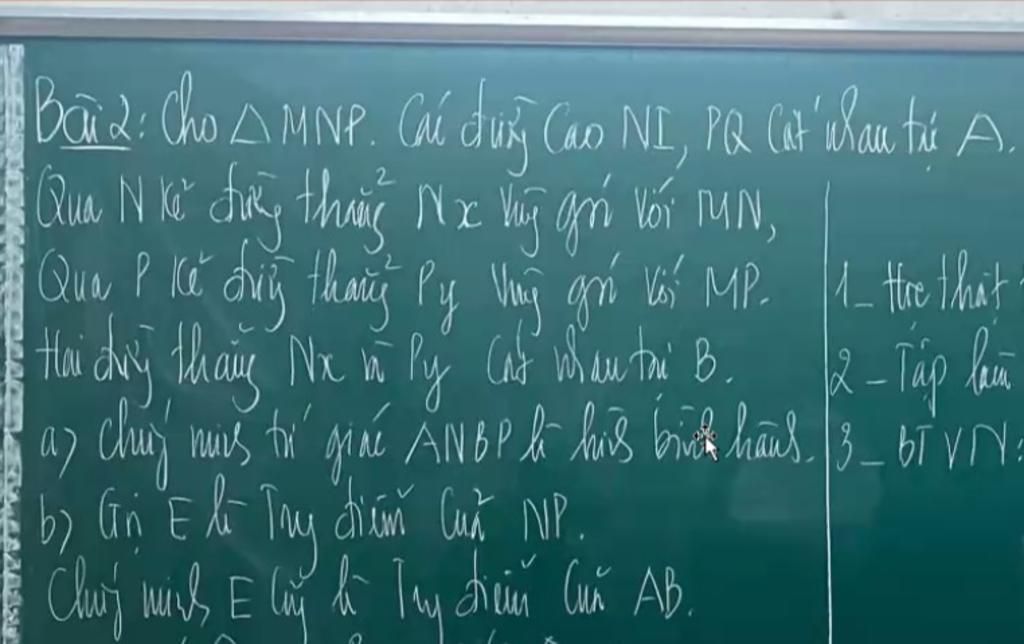 Bài 2: Cho △MNP. Các đường cao NI, PQ cắt nhau tại A.
Qua N kẻ đường thẳng Nx vuông góc với MN,
Qua P kẻ đường thẳng Py vuông góc với MP.
Hai đường thẳng Nx và Py cắt nhau tại B.
a) Chứng minh tứ giác ANBP là hình bình hành.
b) Gọi E là Trung điểm của NP.
Chứng minh E cũng là Trung điểm của AB.
1_ Học thật
2_ Tập làm
3_ BTVN: